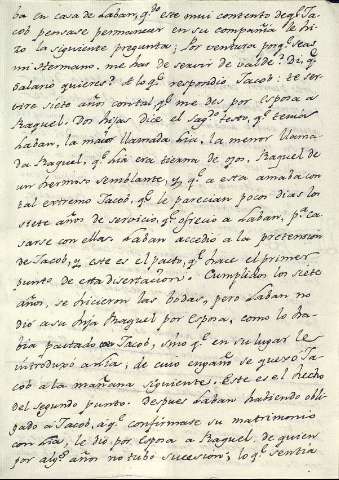 ba en casa de Laban, qdo este mui contento de qe Ja-
cob pensase permanecer en su compañia le hi-
zo la siguiente pregunta; Por ventura porqe seas
mi Hermano, me has de servir de valde? Di, qe
salario quieres? A lo qe respondio Jacob: te ser-
vire siete años con tal, qe me des por Esposa a
Raquel. Dos hijas dice el Sagdo testo, qe tenia
Laban, la maior llamada Lia, la menor llama-
da Raquel, qe Lia era tierna de ojos, Raquel de
un hermoso semblante, y qe a esta amada con
tal extremo Jacob, qe le parecian pocos dias los
siete años de servicio, qe ofrecio a Laban, pa ca-
sarse con ellas. Laban accedio a la pretension
de Jacob, y este es el pacto, qe hace el primer
punto de esta disertacion. Cumplidos los siete
años, se hicieron las bodas, pero Laban no
dio a su hija Raquel por Esposa, como lo ha-
bia pactado con Jacob, sino qe en su lugar le
introduxo a Lia; de cuio engaño se quexo Ja-
cob a la mañana siguiente. Este es el hecho
del segundo punto. Despues Laban habiendo obli-
gado a Jacob, a qe confirmase su matrimonio
con Lia, le dio por Esposa a Raquel, de quien
por algs años no tubo sucesion; lo qe sentia